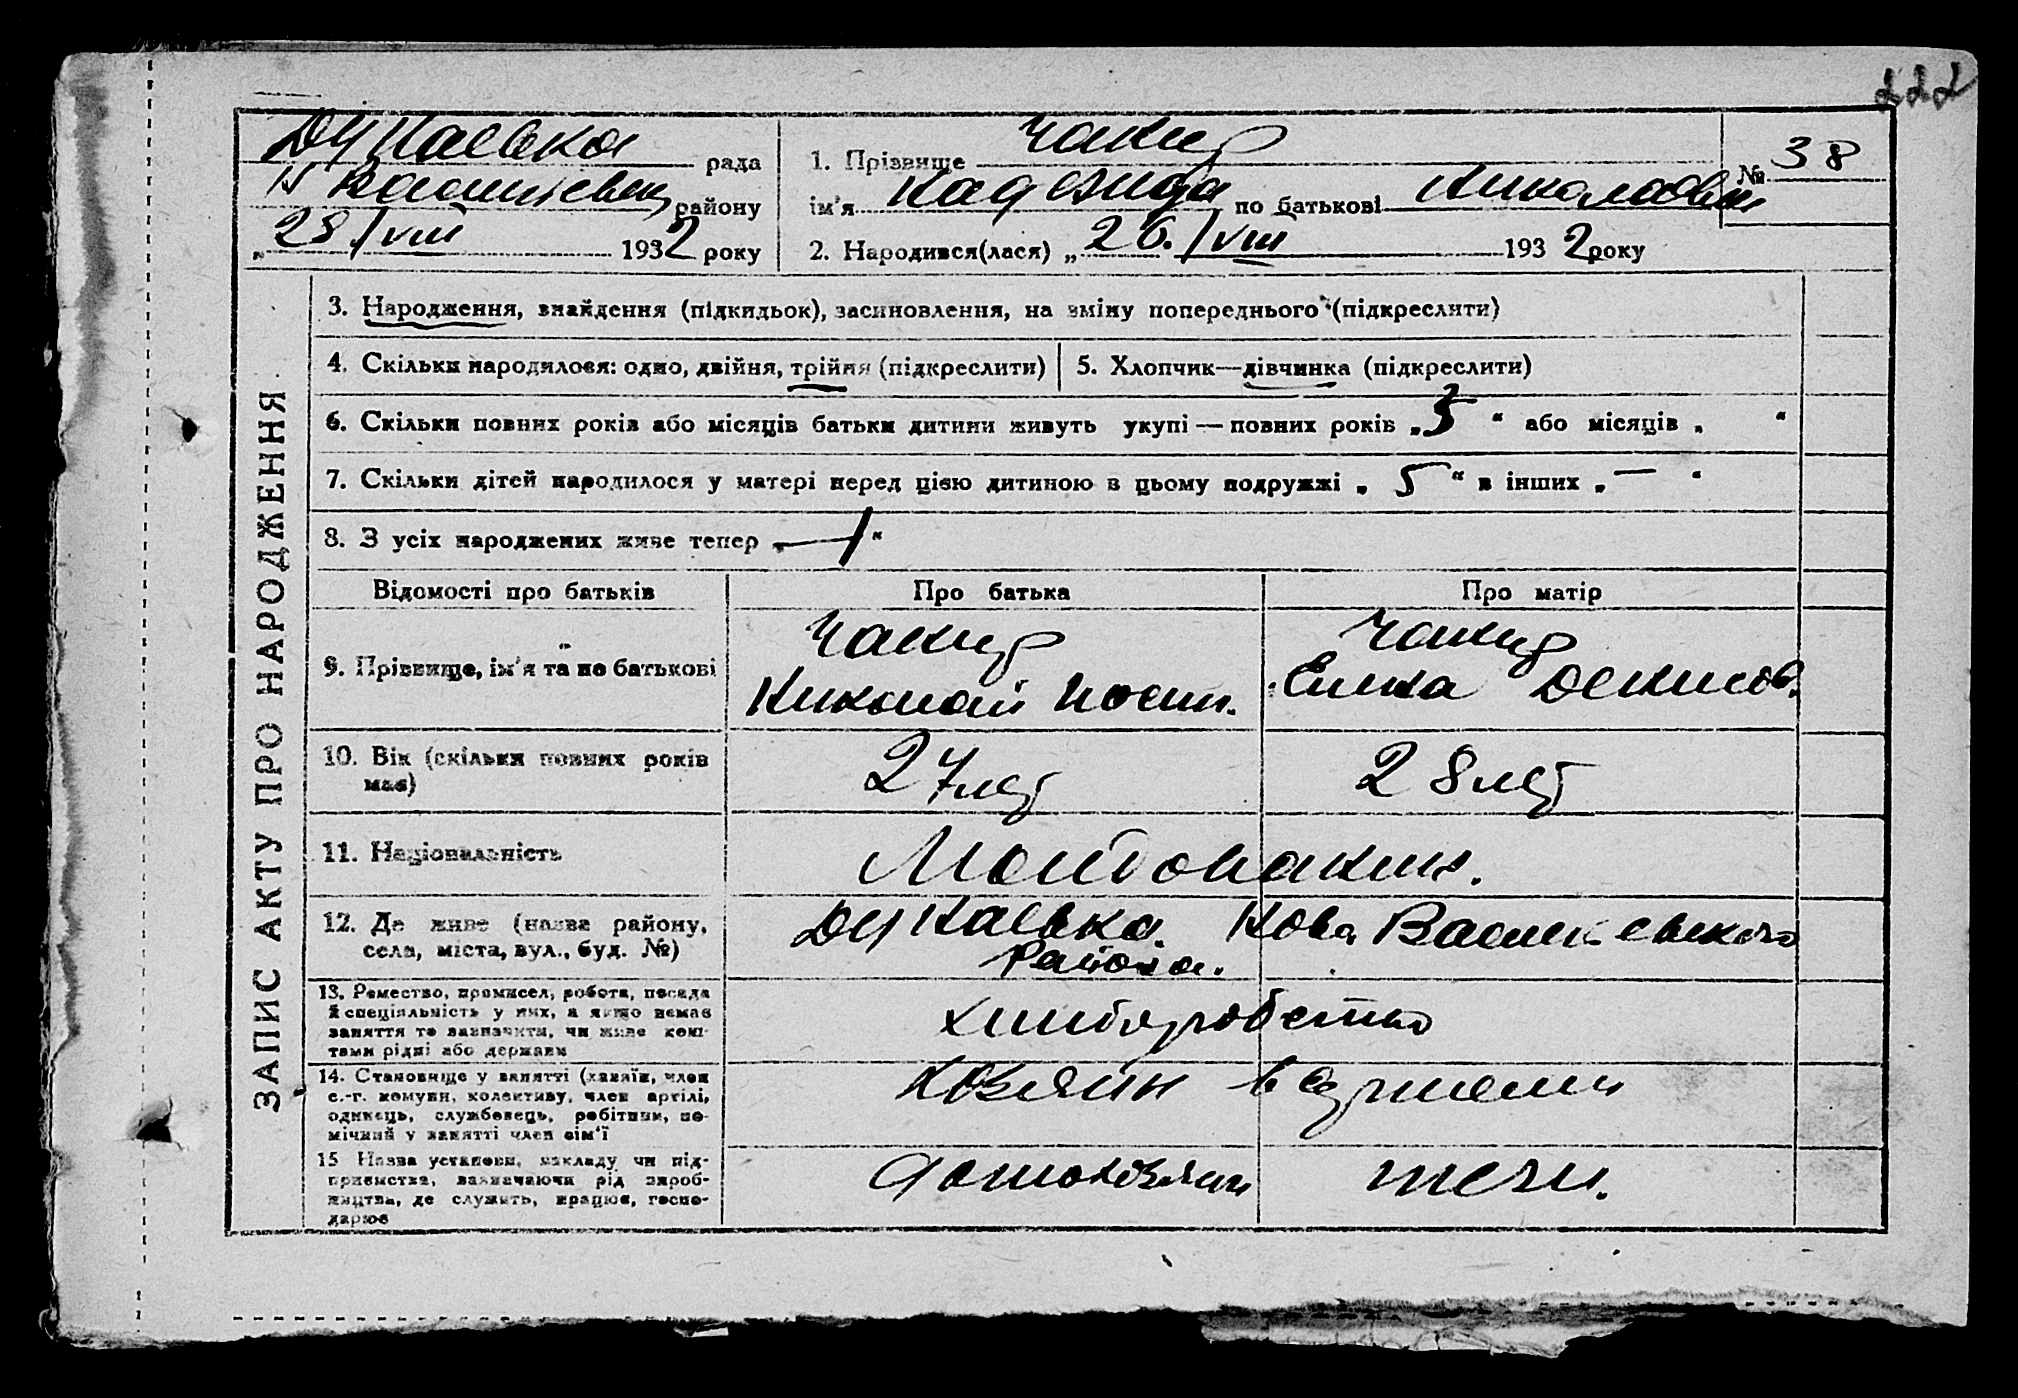 222
Дунаевка рада
Н Васильевец району
„28/VIII 1932 року
1. Прізвище Чакир
ім'я Надежда по батькові Николаевн
№ 38
2. Народився(лася) „26./VIII 1932 року
ЗАПИС АКТУ ПРО НАРОДЖЕННЯ
3. Народження, знайдення (підкидьок), засиновлення, на зміну попереднього (підкреслити)
4. Скільки народилося: одно, двійня, трійня (підкреслити)
5. Хлопчик—дівчинка (підкреслити)
6. Скільки повних років або місяців батьки дитини живуть укупі — повних років „ “ або місяців „ “
7. Скільки дітей народилося у матері перед цією дитиною в цьому подружжі „ 5 “ в інших „ — “
8. З усіх народжених живе тепер „ “
Відомості про батьків Про батька Про матір
9. Прізвище, ім'я та по батькові
Чакир
Николай
Чакир
Денисов.
10. Вік (скільки повних років
має)
27 лет
28 лет
11. Національність
12. Де живе (назва району,
села, міста, вул., буд. №)
Дунаевка. Ново Васильевского
Района.
13. Ремество, промисел, робота, посада
й спеціяльність у них, а якщо немає
заняття то зазначити, чи живе кош-
тами рідні або держави
хлиборобство
14. Становище у занятті (хазяїн, член
с.-г. комуни, колективу, член артілі,
одинець, службовець, робітник, по-
мічний у занятті член сім'ї
хозяин
15 Назва установи, закладу чи під-
приємства, зазначаючи рід вироб-
ництва, де служить, працює, госпо-
дарює